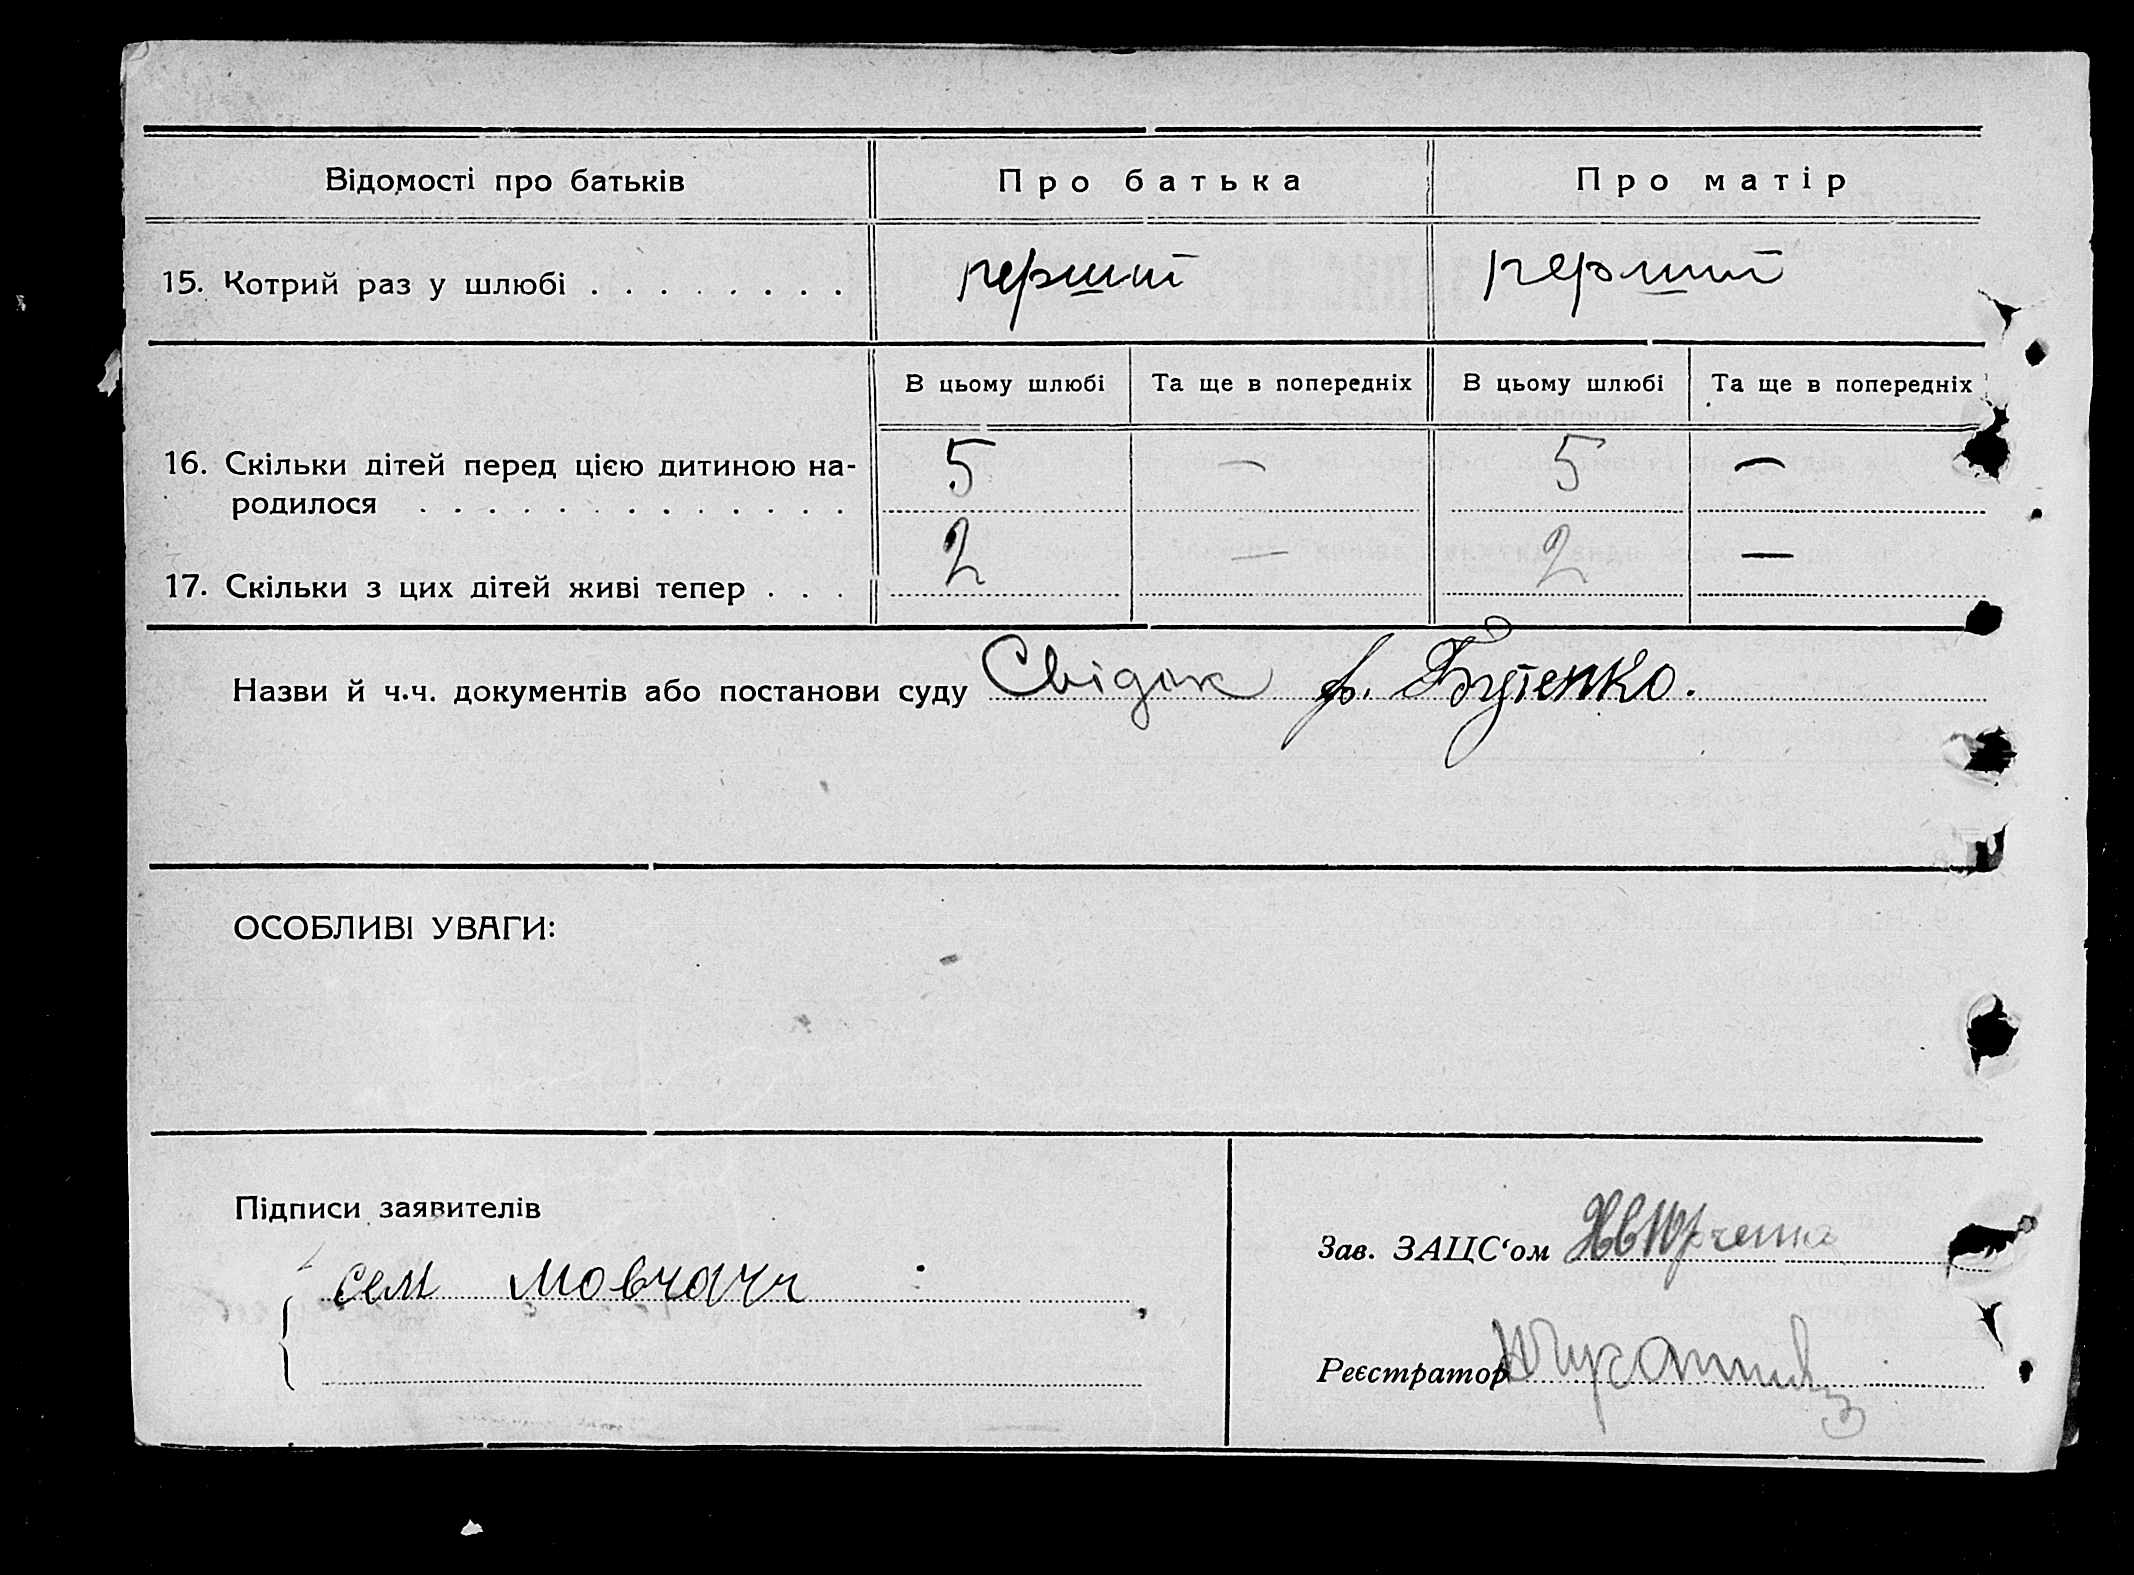 Відомості про батьків Про батька Про матір
15. Котрий раз у шлюбі . . . . . . . . перший перший
В цьому шлюбі Та ще в попередніх В цьому шлюбі Та ще в попередніх
16. Скільки дітей перед цією дитиною на- 5 — 5 —
родилося . . . . . . . . . . . . .
17. Скільки з цих дітей живі тепер . . . 2 — 2 —
Назви й ч.ч. документів або постанови суду Свідок ф. Бутенко.
ОСОБЛИВІ УВАГИ:
Підписи заявителів
сем мовчан
Зав. ЗАЦС‘ом
Реєстратор